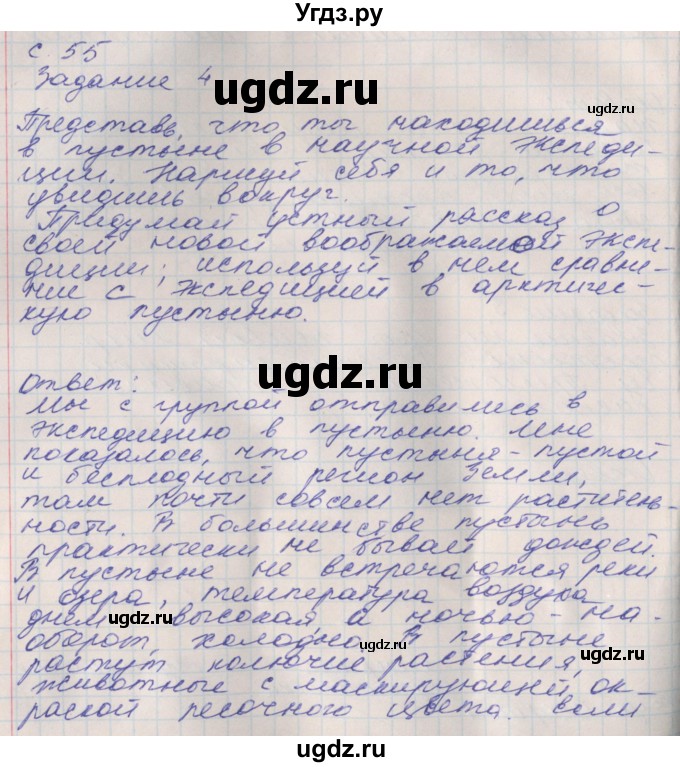 Угдз.ру
с 55
Задание 4
ugdz.ru
ugdz.ru
Представь, что ты находишься
в пустыне в научной экспеди-
ции. Нарисуй себя и то, что
увидишь вокруг.
Придумай устный рассказ о
своей новой воображаемой экспе-
диции; используй в нем сравне-
ние с экспедицией в арктичес-
кую пустыню.
ugdz.ru
ugdz.ru
Ответ:
Мы с группой отправились в
экспедицию в пустыню. Мне
показалось, что пустыня-пустой
и бесплодный регион Земли,
там почти совсем нет раститель-
ности. В большинстве пустынь
практически не бывает дождей.
ugdz.ru
В пустыне не встречаются реки
и озера, температура воздуха
днем высокая а ночью - на-
оборот, холодно. В пустыне
ugdz.ru
ugdz.ru
растут колючие растения,
животные с маскирующей ок-
раской песочного цвета. Если
ugdz.ru